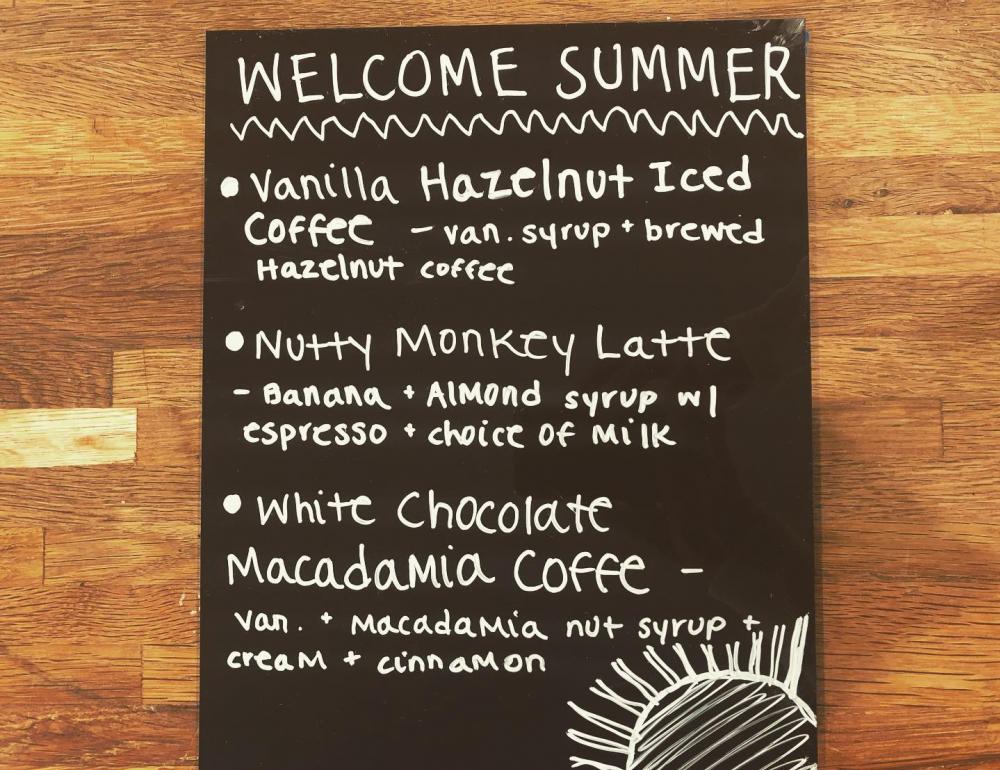 WELCOME SUMMER
• Vanilla Hazelnut Iced
Coffee - van. syrup + brewed
Hazelnut coffee
• Nutty Monkey Latte
- Banana + Almond syrup w/
espresso + choice of milk
• White Chocolate
Macadamia Coffe -
van. + macadamia nut syrup +
cream + cinnamon